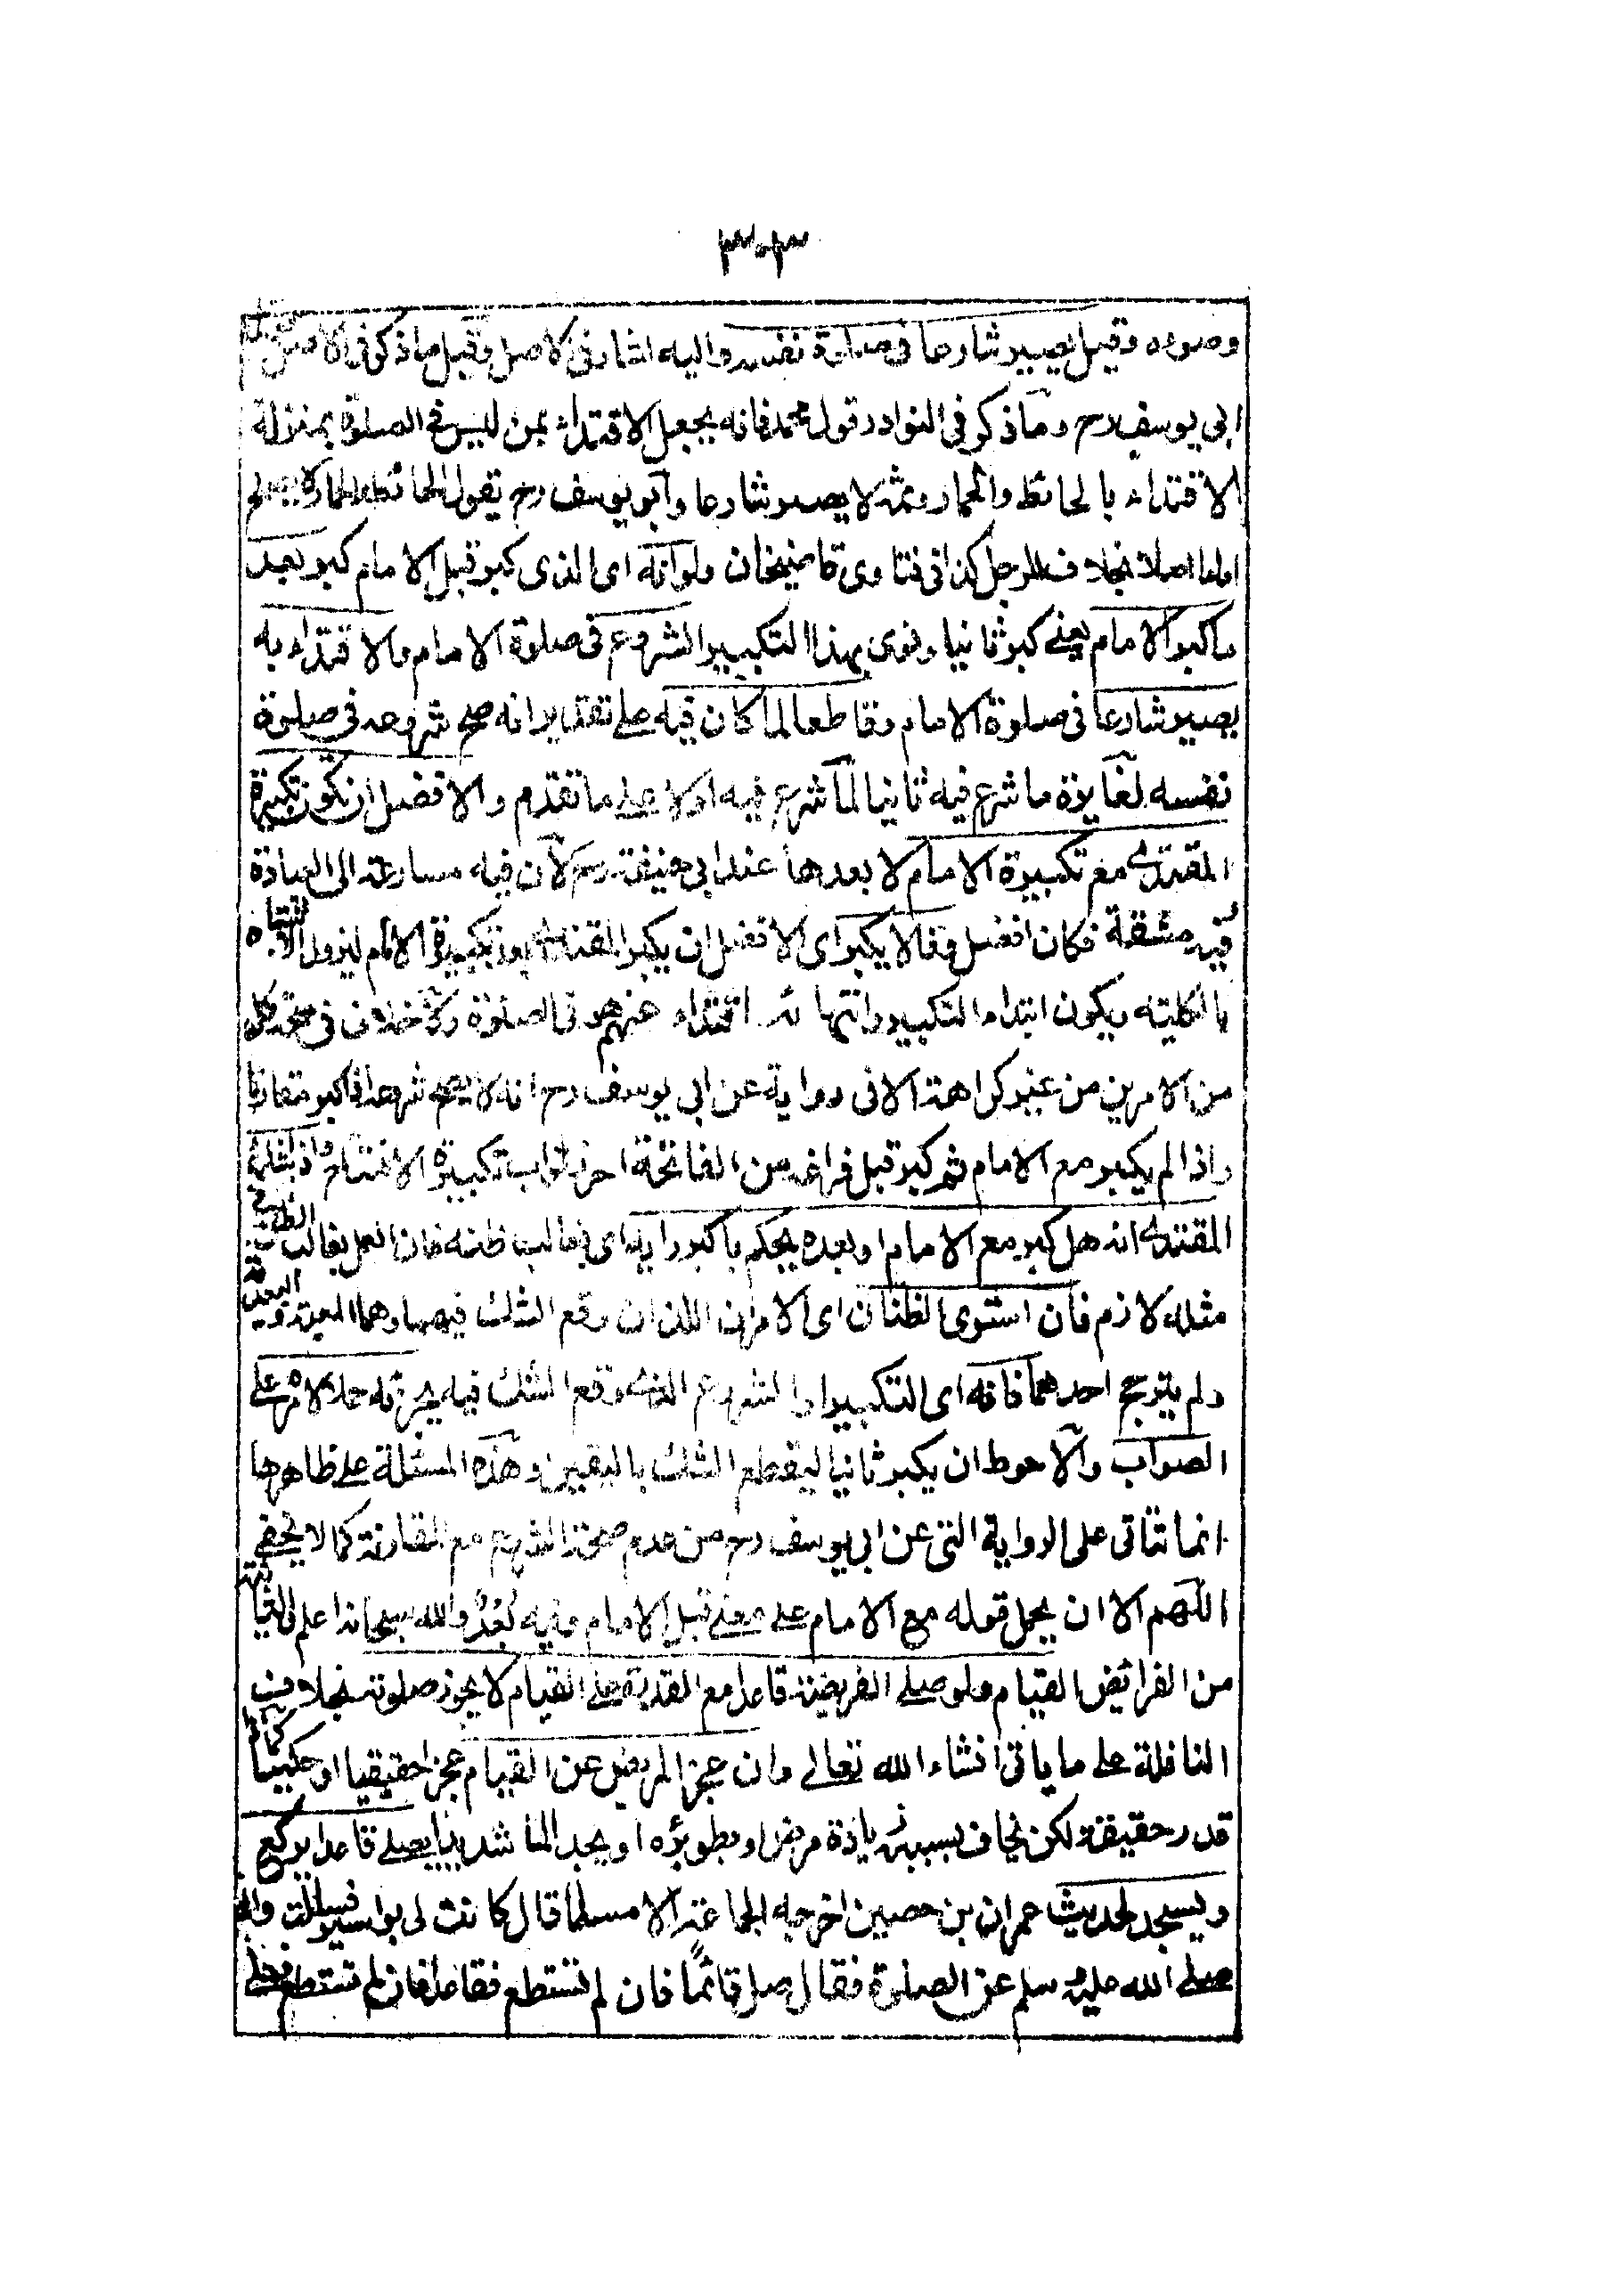 ٣٠٣
وصومه وقيل يصير شارعا فى صلوة نفسه واليه اشار فى الاصل وقيل ما ذكر فى الاصل قول
ابى يوسف رح وما ذكر فى النوادر قول محمد فانه يجعل الاقتداء بمن ليس فى الصلوة بمنزلة
الاقتداء بالحائط والحمار وثمه لا يصير شارعا وابو يوسف رح يقول الحائط والحمار لا يصلح
اماما اصلا بخلاف الرجل كذا فى فتاوى قاضيخان ولو انه اى الذى كبر قبل الامام كبر بعد
ما كبر الامام يعنى كبر ثانيا ونوى بهذا التكبير الشروع فى صلوة الامام والاقتداء به
يصير شارعا فى صلوة الامام وقاطعا لما كان فيه على تقدير انه صح شروعه فى صلوة
نفسه لمغايرة ما شرع فيه ثانيا لما شرع فيه اولا على ما تقدم والافضل ان تكون تكبيرة
المقتدى مع تكبيرة الامام لا بعدها عند ابى حنيفة رح لان فيه مسارعة الى العبادة
وفيه مشقة فكان افضل وقالا يكبر اى الافضل ان يكبر المقتدى بعد تكبيرة الامام ليزول الاشتباه
بالكلية ويكون ابتداء التكبير وانتهائه اقتداء منهم فى الصلوة ولا خلاف فى صحة كل
من الامرين من غير كراهة الا فى رواية عن ابى يوسف رح انه لا يصح شروعه اذا كبر مقارنا
واذا لم يكبر مع الامام ثم كبر قبل فراغه من الفاتحة احرز ثواب تكبيرة الافتتاح واذا شك
المقتدى انه هل كبر مع الامام او بعده يحكم باكبر رايه اى بغالب ظنه فان العمل بغالب الظن فى
مثله لازم فان استوى الظنان اى الامران اللذان وقع الشك فيهما وهما المعية والبعدية
ولم يترجح احدهما فانه اى التكبير او الشروع الذى وقع الشك فيه يجزئه حملا لامره على
الصواب والاحوط ان يكبر ثانيا ليقطع الشك باليقين وهذه المسئلة على ظاهرها
انما تتاتى على الرواية التى عن ابى يوسف رح من عدم صحة الشروع مع المقارنة كما لا يخفى
اللهم الا ان يحمل قوله مع الامام على معنى قبل الامام وفيه بُعْدٌ والله سبحانه اعلم الثانية
من الفرائض القيام ولو صلى الفريضة قاعدا مع القدرة على القيام لا يجوز صلوته بخلاف
النافلة على ما ياتى انشاء الله تعالى وان عجز المريض عن القيام عجزا حقيقيا او حكميا كما اذا
قدر حقيقة ولكن يخاف بسببه زيادة مرض او بطؤ برؤه او يجد الما شديدا يصلى قاعدا يركع
ويسجد لحديث عمران بن حصين اخرجه الجماعة الا مسلما قال كانت لى بواسير فسألت النبى
صلى الله عليه وسلم عن الصلوة فقال صل قائمًا فان لم تستطع فقاعدا فان لم تستطع فعلى